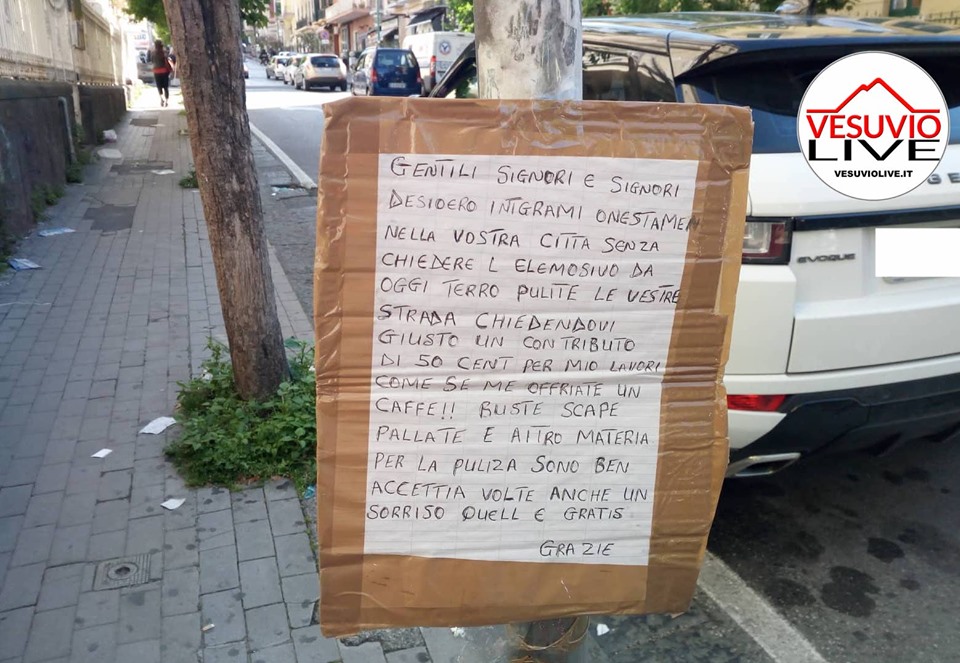 VESUVIO
LIVE
VESUVIOLIVE.IT
GENTILI SIGNORI E SIGNORI
DESIDERO INTGRAMI ONESTAMEN
NELLA VOSTRA CITTA SENZA
CHIEDERE L ELEMOSIVO DA
OGGI TERRO PULITE LE VESTRE
STRADA CHIEDENDOVI
GIUSTO UN CONTRIBUTO
DI 50 CENT PER MIO LAVORI
COME SE ME OFFRIATE UN
CAFFE!! BUSTE SCAPE
PALLATE E AITRO MATERIA
PER LA PULIZA SONO BEN
ACCETTIA VOLTE ANCHE UN
SORRISO QUELL E GRATIS
GRAZIE
EVOQUE